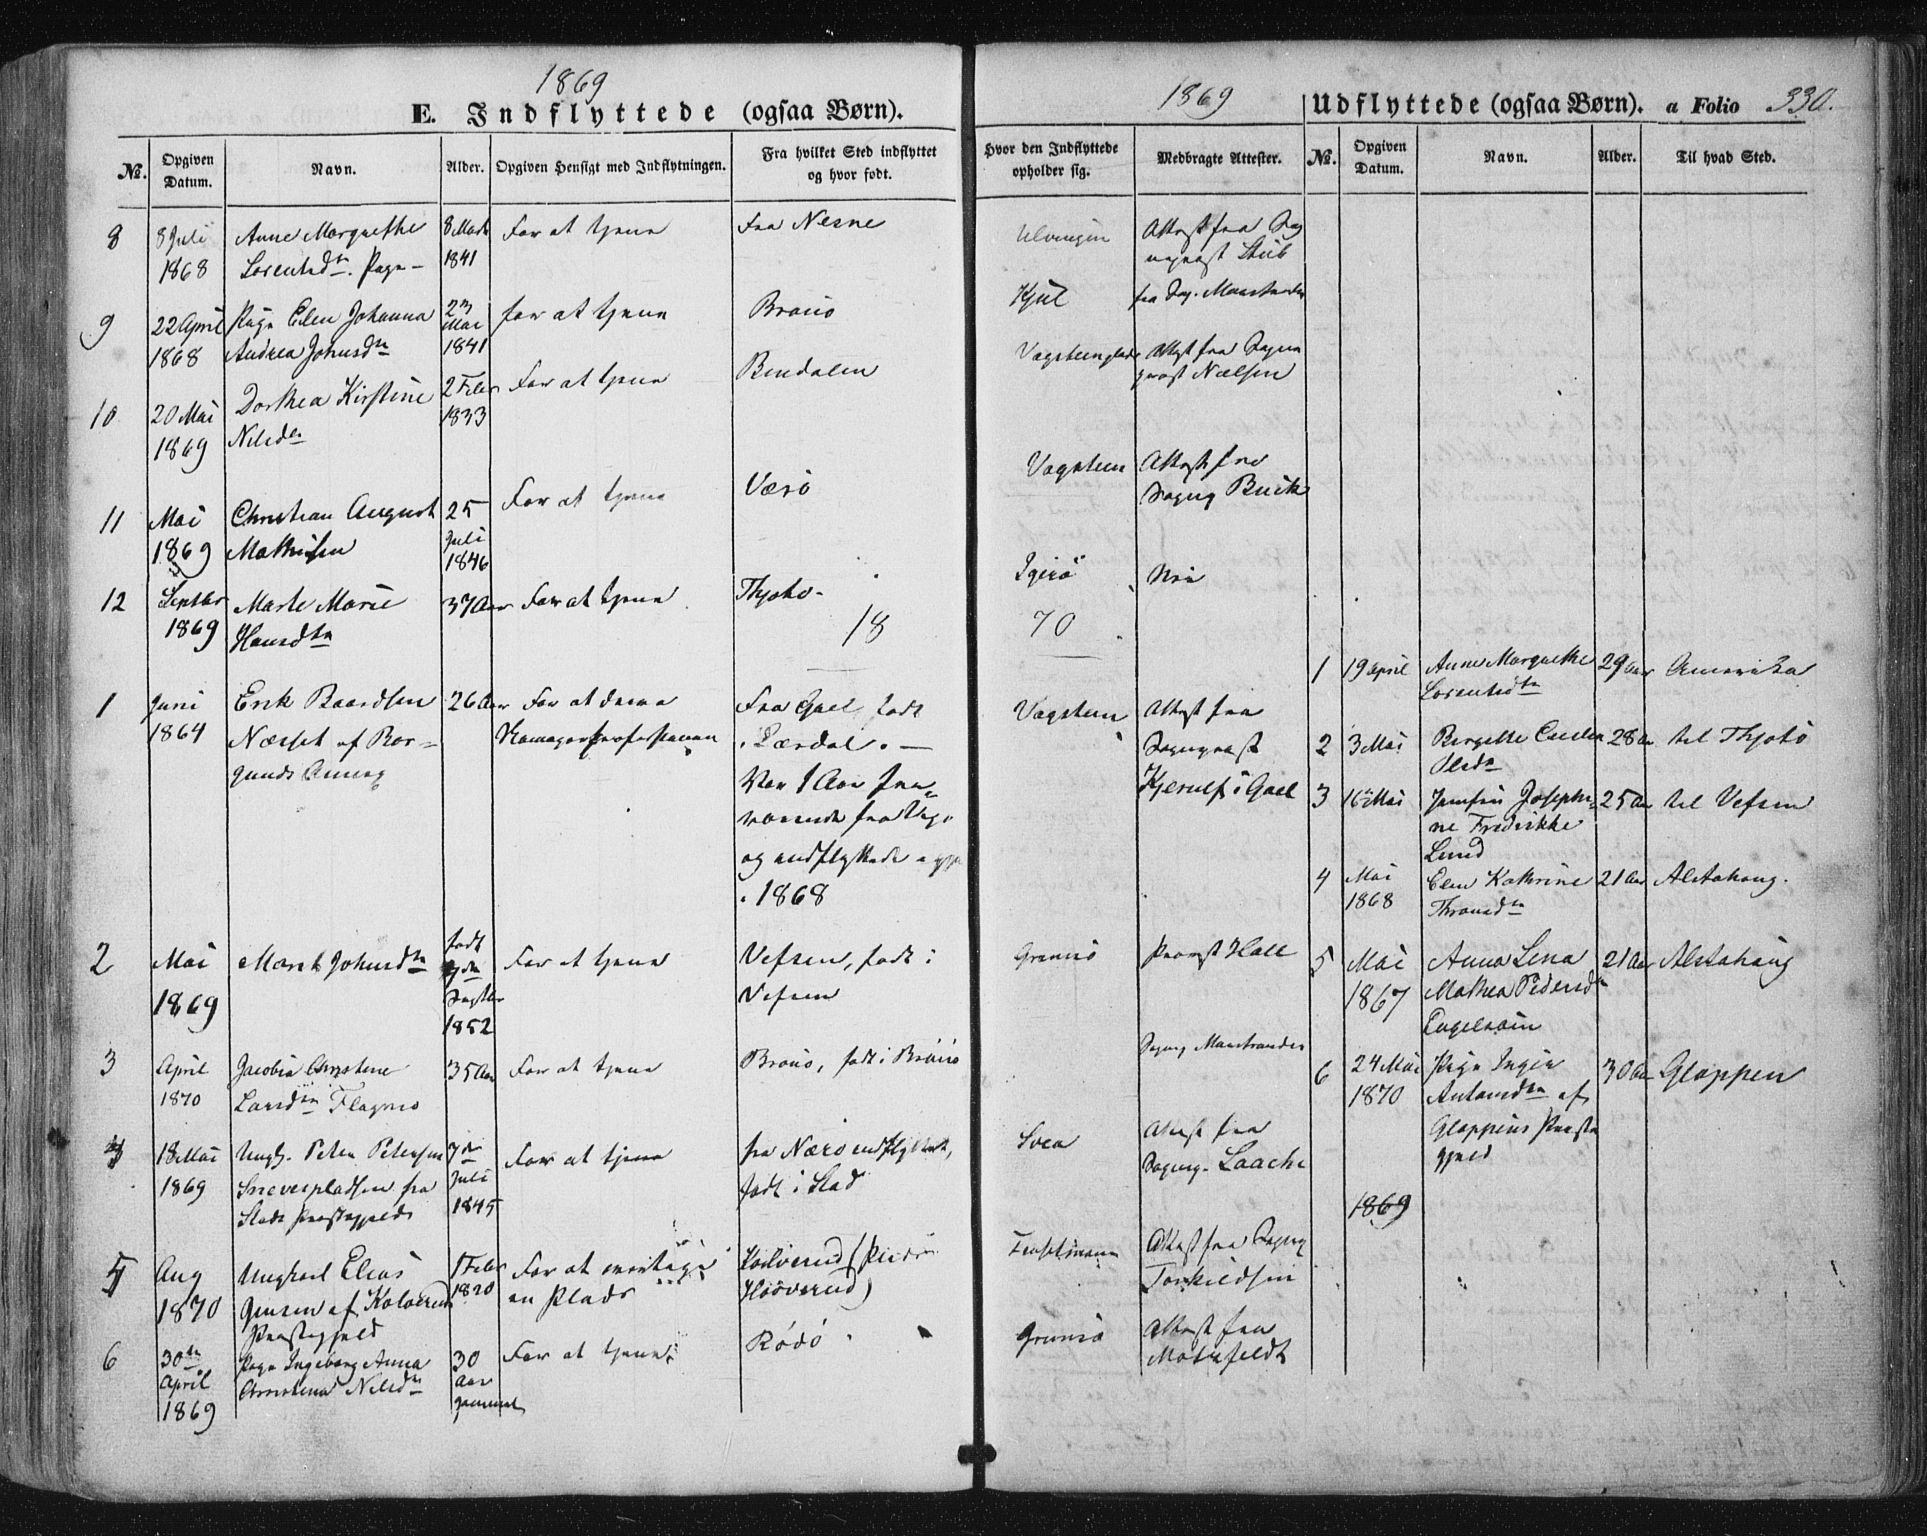 1869
E. Indflyttede (ogsaa Børn).
№.
Opgiven Datum.
Navn.
Alder.
Opgiven Hensigt med Indflytningen.
Fra hvilket Sted indflyttet og hvor født.
8
8 Juli
1868
Anne Margrethe
Lorentsdtr. Pige
8 Marts
1841
For at tjene
Fra Nesne
9
22 April
1868
Pige Elen Johanna
Andrea Johnsdtr
23
Mai
1841
for at tjene
Brønø
10
20 Mai
1869
Dorthea Kirstine
Nilsdtr
2 Febr
1833
For at tjene
Bindalen
11
Mai
1869
Christian August
Mathisen
25
Juli
1846
For at tjene
Værø
12
Septbr
1869
Marte Marie
Hansdtr
37 Aar
For at tjene
Thjøtø
18
1
Juni
1864
Erik Baardsen
Næsset af Bor-
gunds Annex
26 Aar
For at drive
Fra Gael, født
i Lærdal. -
Var 1 Aar fra-
værende fra Vega
og indflyttede igjen
i 1868
2
Mai
1869
Marit Johnsdtr
født
Septbr
1852
For at tjene
Vefsen, født i
Vefsen
3
April
1870
Jacobia Christine
Larsdtr Flagnes
35 Aar
For at tjene
Brønø, født i Brønø
4
18 Mai
1869
Ungk. Peter Petersen
Snevespladsen fra
Stads Præstegjeld
7de
Juli
1845
For at tjene
fra Nærø indflyttet,
født i Stad
5
Aug
1870
Ungkarl Elias
Jensen af Kolvereid
Præstegjeld
1 Febr
1820
For at modtage
en Plads
6
30te
April
1869
Pige Ingeborg Anna
Nilsdtr
30
Aar
gammel
For at tjene
Rødø
1869
Udflyttede (ogsaa Børn). a Folio 330.
Hvor den Indflyttede opholder sig.
Medbragte Attester.
№.
Opgiven Datum.
Navn.
Alder.
Til hvad Sted.
Ulvingen
Attest fra Sog
neprest Stub
Kjul
fra Sog. Manstrander
Attest fra Sogne
prest Nielsen
Vægsteen
Attest fra
Sognep Buck
Igerø
Nei
70
Vægsteen
Attest fra
Sogneprest
Kjerulf i Gael
Grimsø
Provst Hall
Sognep Manstrander
Svea
Attest fra
Sognep. Laache
Attest fra Sognep
Torkildsen
Grimsø
Attest fra
Motzfeldt
1
19 April
Anne Margrethe
Lorentsdtr
29 Aar
Amerika
2
3 Mai
Olsdtr
28 Aar
til Thjøtø
3
16 Mai
Jomfru Josephi-
ne Fredrikke
Lund
25 Aar
til Vefsen
4
Mai
1868
Elen Kathrine
Thronsdtr
21 Aar
Alstahaug.
5
Mai
1867
Anna Lena
Mathea Pedersdtr
21 Aar
Alstahaug
6
24 Mai
1870
Pige Inger
Antonsdtr af
Gloppens Præste
gjeld
30 Aar
Gloppen
1869